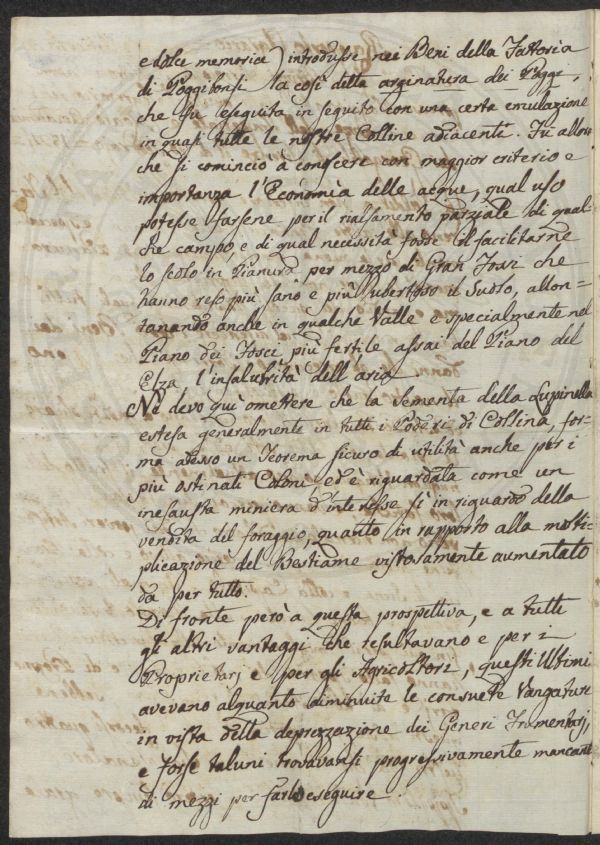 e dolce memoria) introdusse nei Beni della Fattoria
di Poggibonsi la così detta arginatura dei Poggi,
che fu eseguita in seguito con una certa emulazione
in quasi tutte le nostre Colline adiacenti. Fu allora
chè si cominciò à conoscere con maggior criterio e
importanza l'Economìa delle acque, qual uso
potesse farsene per il rialzamento parziale di qual-
che campo, e di qual necessità fosse il facilitarne
lo scolo in Pianura per mezzo di Gran Fossi che
hanno reso più sano e più ubertoso il Suolo, allon=
tanando anche in qualche Valle e specialmente nel
Piano dei Fosci, più fertile assai del Piano del
Elsa, l'insalubrità dell'aria.
Nè devo quì omettere che la Sementa della Lupinella
estesa generalmente in tutti i Poderi di Collina, for-
ma adesso un Teorema sicuro di utilità anche per i
più ostinati Coloni, ed è riguardata come un
inesausta miniera d'interesse sì in riguardo della
vendita del foraggio, quanto in rapporto alla molti-
plicazione del Bestiame vistosamente aumentato
da per tutto.
Di fronte però a questa prospettiva, e a tutti
gli altri vantaggi che resultavano e per i
Proprietarj e per gli Agricoltori, questi Ultimi
avevano alquanto diminuite le consuete Vangature
in vista della deprezzazione dei Generi Frumentarj,
e forse taluni trovavansi progressivamente mancanti
di mezzi per farle eseguire.